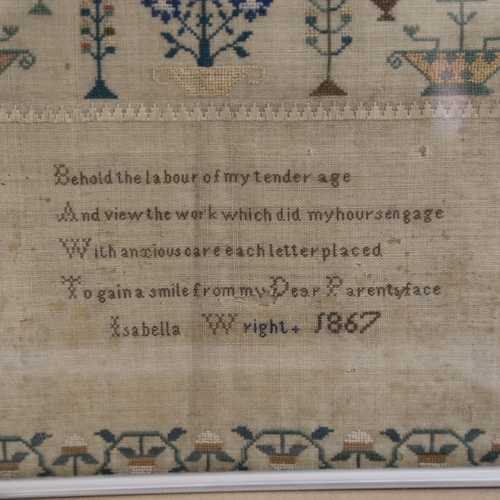 Behold the labour of my tender age
And view the work which did my hours engage
With anxious care each letter placed
To gain a smile from my Dear Parents face
Isabella Wright + 1867